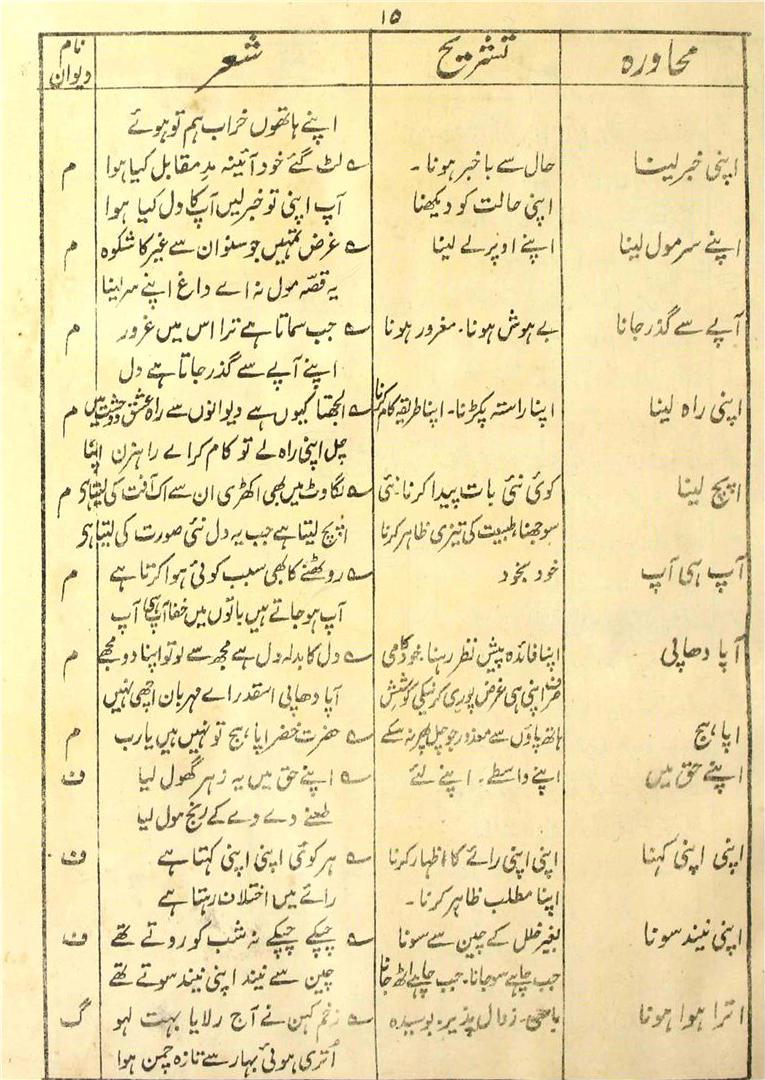 ۱۵
محاورہ تشریح شعر نام دیوان
اپنے ہاتھوں خراب ہم تو ہوئے
اپنی خبر لینا حال سے باخبر ہونا۔ ؎ لٹ گئے خود آئینہ مدِ مقابل کیا ہوا م
اپنی حالت کو دیکھنا آپ اپنی تو خبر لیں آپ کا دل کیا ہوا
اپنے سر مول لینا اپنے اوپر لے لینا ؎ غرض تمہیں جو سنو ان سے غیر کا شکوہ م
یہ قصّہ مول نہ اے داغ اپنے سر لینا
آپے سے گذر جانا بے ہوش ہونا۔ مغرور ہونا ؎ جب سماتا ہے ترا اس میں غرور م
اپنے آپے سے گذر جاتا ہے دل
اپنی راہ لینا اپنا راستہ پکڑنا۔ اپنا طریقہ کام کرنا ؎ الجھتا کیوں ہے دیوانوں سے راہ عشق و وحشت میں م
چل اپنی راہ لے تو کام کر اے راہزن اپنا
اپچ لینا کوئی نئی بات پیدا کرنا۔ نئی ؎ لگاوٹ میں بھی اکھڑی ان سے اک آفت کی لیتا ہی م
سوجھنا، طبیعت کی تیزی ظاہر کرنا اپچ لیتا ہے جب یہ دل نئی صورت کی لیتا ہی
آپ ہی آپ خود بخود ؎ روٹھنے کا بھی سبب کوئی ہوا کرتا ہے م
آپ ہو جاتے ہیں باتوں میں خفا آپ ہی آپ
آپا دھاپی اپنا فائدہ پیش نظر رہنا۔ خودکامی ؎ دل کا بدلہ دل ہے مجھ سے لو تو اپنا دو مجھے م
صرف اپنی ہی غرض پوری کرنیکی کوشش آپا دھاپی اسقدر اے مہربان اچھی نہیں
اپاہج ہاتھ پاؤں سے معذور جو چل پھر نہ سکے ؎ حضرت خضر اپاہج تو نہیں ہیں یارب م
اپنے حق میں اپنے واسطے۔ اپنے لئے ؎ اپنے حق میں یہ زہر گھول لیا ف
طعنے دے دے کے رنج مول لیا
اپنی اپنی کہنا اپنی اپنی رائے کا اظہار کرنا ؎ ہر کوئی اپنی اپنی کہتا ہے ف
اپنا مطلب ظاہر کرنا۔ رائے میں اختلاف رہتا ہے
اپنی نیند سونا بغیر خلل کے چین سے سونا ؎ چپکے چپکے نہ شب کو روتے تھے ف
جب چاہے سو جانا۔ جب چاہے اٹھ جانا چین سے نیند اپنی نیند سوتے تھے
اترا ہوا ہونا باسی۔ زوال پذیر۔ بوسیدہ ؎ زخم کہن نے آج رلایا بہت لہو گ
اُتری ہوئی بہار سے تازہ چمن ہوا